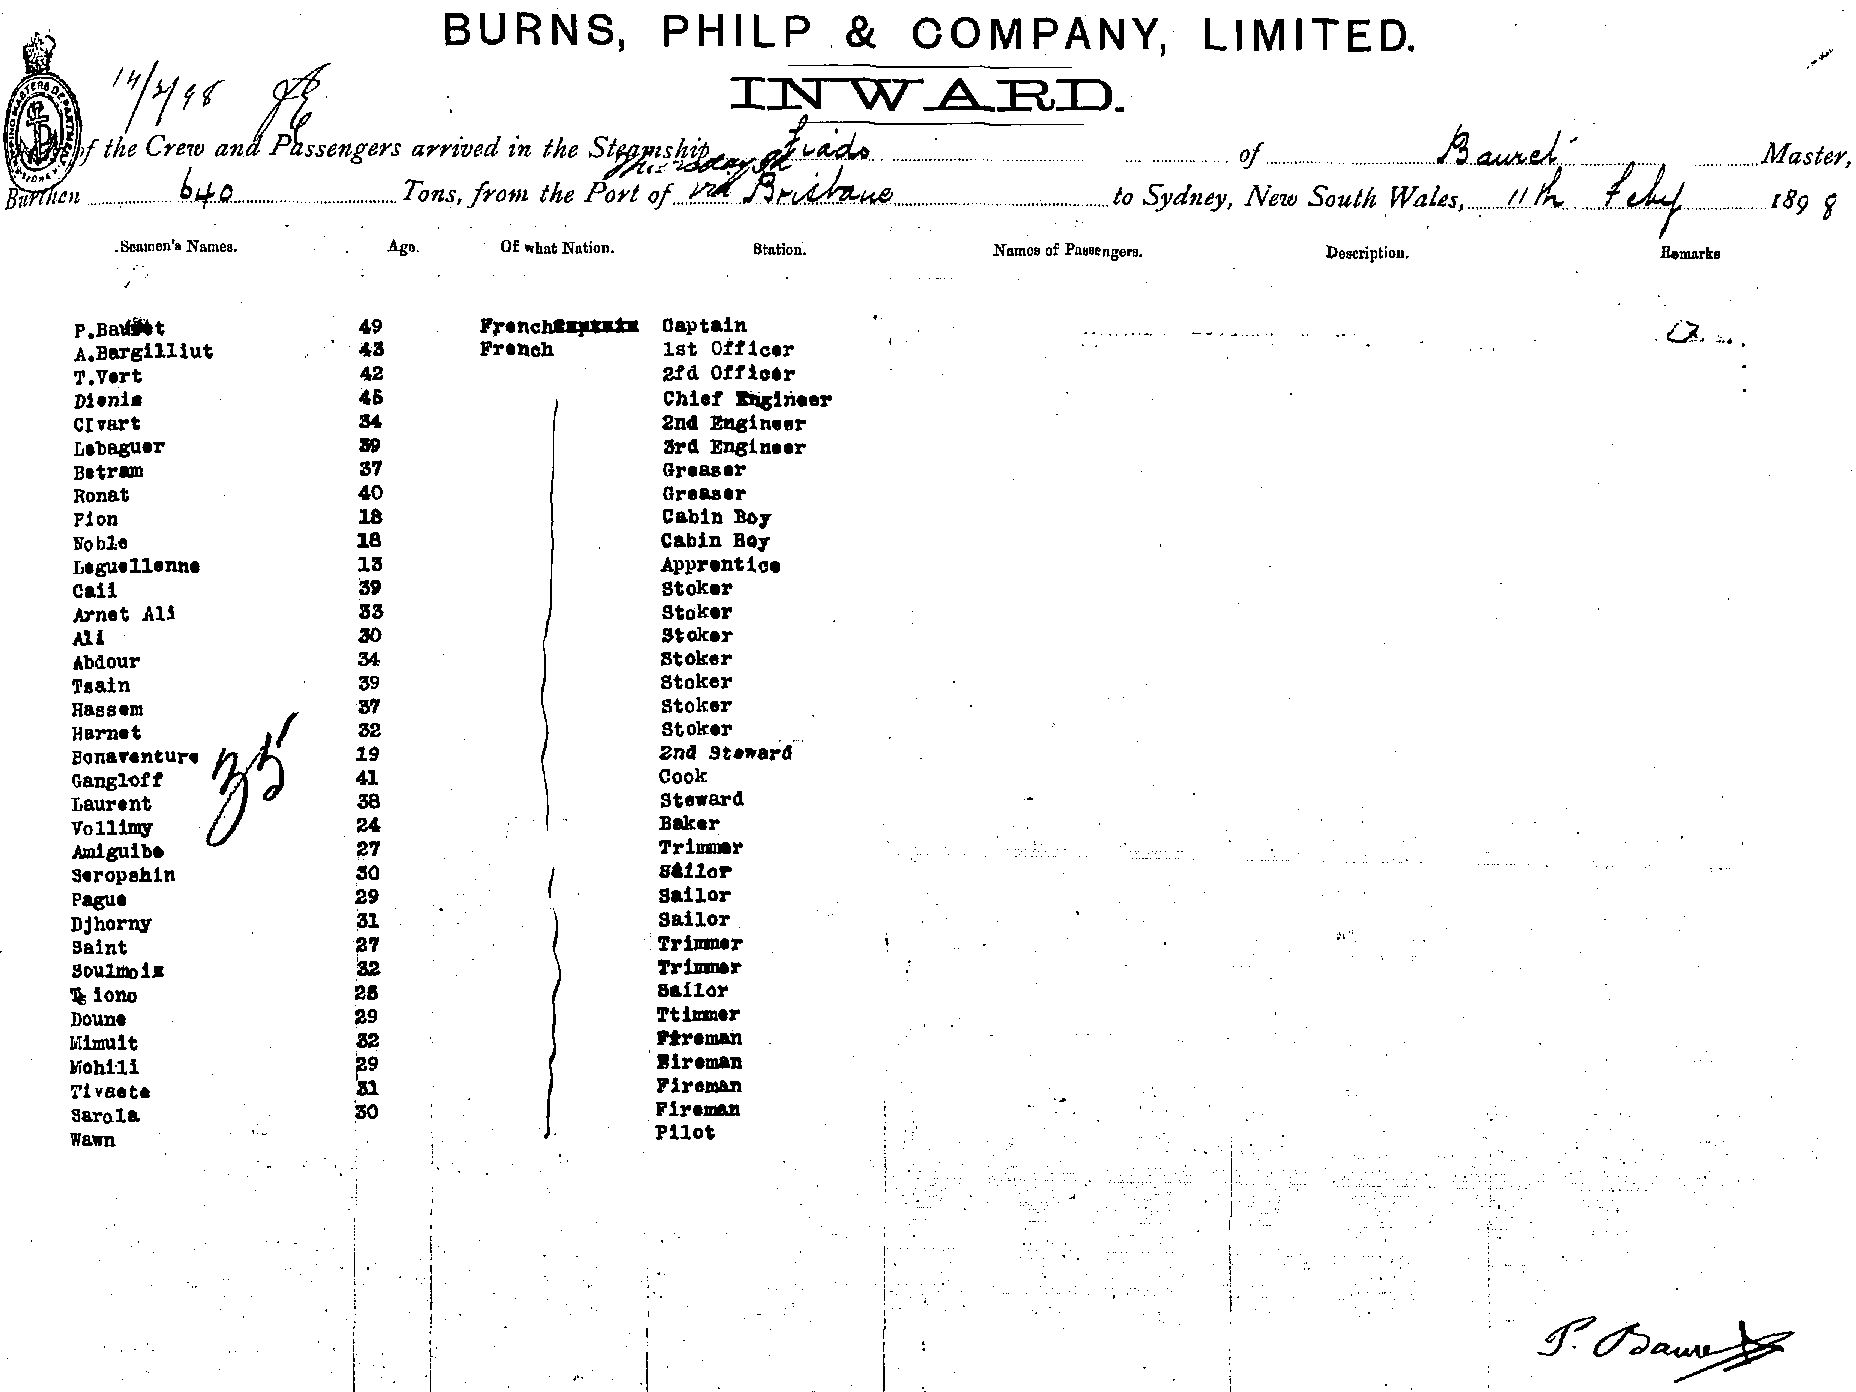 BURNS, PHILP & COMPANY, LIMITED.
INWARD.
14/2/98
of the Crew and Passengers arrived in the Steamship of Bauret Master,
Thursday Id
Burthen 640 Tons, from the Port of via Brisbane to Sydney, New South Wales, 11th Feby 1898
Seamen's Names. Age. Of what Nation. Station. Names of Passengers. Description. Remarks
P.Bauret 49 French Captain
A.Bargilliut 43 French 1st Officer
T.Vert 42 2fd Officer
Dienis 45 Chief Engineer
CIvart 34 2nd Engineer
Lebaguer 39 3rd Engineer
Betram 37 Greaser
Ronat 40 Greaser
Pion 18 Cabin Boy
Noble 18 Cabin Boy
Leguellenne 13 Apprentice
Caii 39 Stoker
Arnet Ali 33 Stoker
Ali 30 Stoker
Abdour 34 Stoker
Tsain 39 Stoker
Hassem 37 Stoker
Harnet 32 Stoker
Bonaventure 19 2nd Steward
35
Gangloff 41 Cook
Laurent 38 Steward
Vollimy 24 Baker
Amiguibe 27 Trimmer
Seropshin 30 Sailor
Pague 29 Sailor
Djhorny 31 Sailor
Saint 27 Trimmer
Soulmoix 32 Trimmer
iono 28 Sailor
Doune 29 Ttimmer
Mimuit 32 Fireman
Mohili 29 Bireman
Tivaete 31 Fireman
Sarola 30 Fireman
Wawn Pilot
P. Bauret